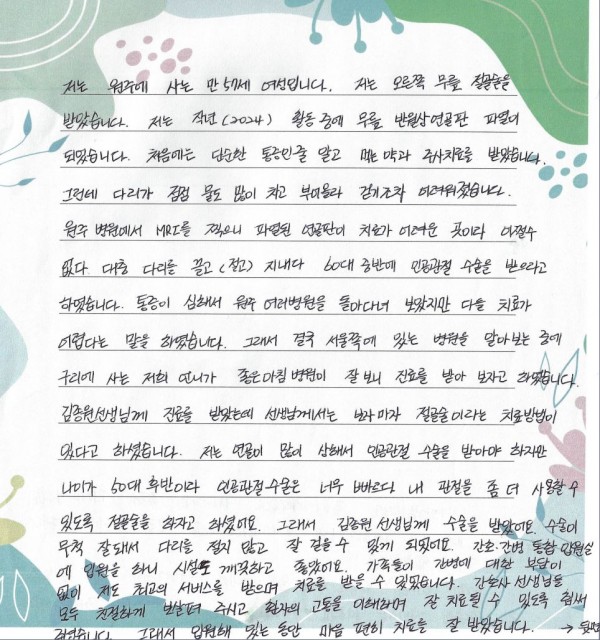 저는 원주에 사는 만 57세 여성입니다. 저는 오른쪽 무릎 절골술을
받았습니다. 저는 작년(2024) 활동 중에 무릎 반월상연골판 파열이
되었습니다. 처음에는 단순한 통증인줄 알고 먹는 약과 주사치료를 받았습니다.
그런데 다리가 점점 물도 많이 차고 부어올라 걷기조차 어려워졌습니다.
원주 병원에서 MRI를 찍으니 파열된 연골판이 치료가 어려운 곳이라 어쩔수
없다. 대충 다리를 끌고(절고) 지내다 60대 중반에 인공관절 수술을 받으라고
하였습니다. 통증이 심해서 원주 여러병원을 돌아다녀 보았지만 다들 치료가
어렵다는 말을 하였습니다. 그래서 결국 서울쪽에 있는 병원을 알아보는 중에
구리에 사는 저희 언니가 좋은아침병원이 잘 보니 진료를 받아 보자고 하였습니다.
김종원선생님께 진료를 받았는데 선생님께서는 보자마자 절골술이라는 치료방법이
있다고 하셨습니다. 저는 연골이 많이 상해서 인공관절 수술을 받아야 하지만
나이가 50대 후반이라 인공관절수술은 너무 빠르다 내 관절을 좀 더 사용할 수
있도록 절골술을 하자고 하셨어요. 그래서 김종원 선생님께 수술을 받았어요. 수술이
무척 잘돼서 다리를 절지 않고 잘 걸을 수 있게 되었어요. 간호·간병 통합 입원실
에 입원을 하니 시설도 깨끗하고 좋았어요. 가족들이 간병에 대한 부담이
없이 저도 최고의 서비스를 받으며 치료를 받을 수 있었습니다. 간호사 선생님들
모두 친절하게 보살펴 주시고 환자의 고통을 이해하며 잘 치료될 수 있도록 힘써
주셨습니다. 그래서 입원해 있는 동안 마음 편히 치료를 잘 받았습니다. → 뒷면